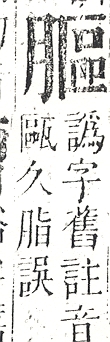 膒
譌字舊註音
甌久脂誤